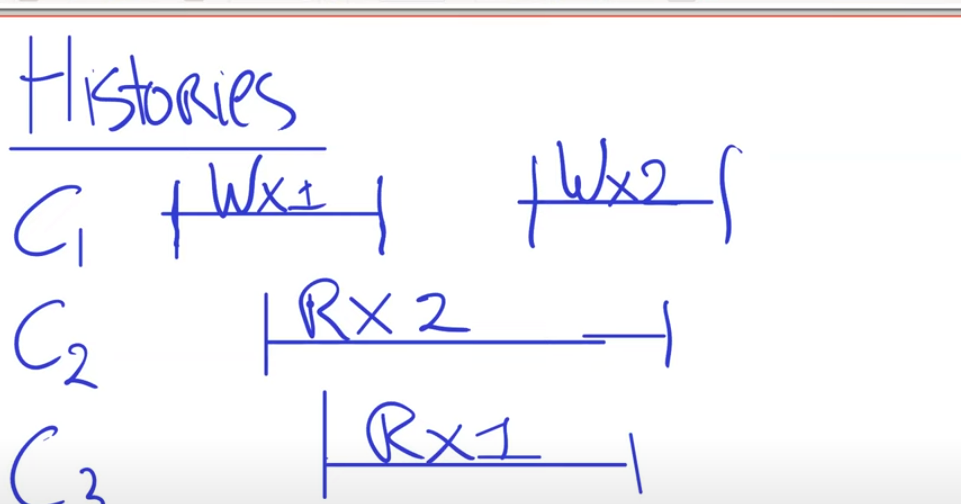 Histories
C1 Wx1 Wx2
C2 Rx2
C3 Rx1